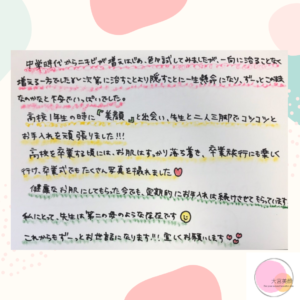 中学時代からニキビが増えはじめ、色々試してみましたが、一向に治ることなく
増える一方でした 次第に治すことより隠すことに一生懸命になり、ずーっとこのまま
なのかなと不安でいっぱいでした。
高校1年生の時に『美顔』と出会い、先生と二人三脚でコツコツと
お手入れを頑張りました!!!
高校を卒業する頃には、お肌はすっかり落ち着き、卒業旅行にも楽しく
行け、卒業式でもたくさん写真を撮れました♡
健康なお肌にしてもらった今でも、定期的にお手入れは続けさせてもらっています
私にとって、先生は第二の母のような存在です
これからもずーっとお世話になります!!! 宜しくお願いします♡♡